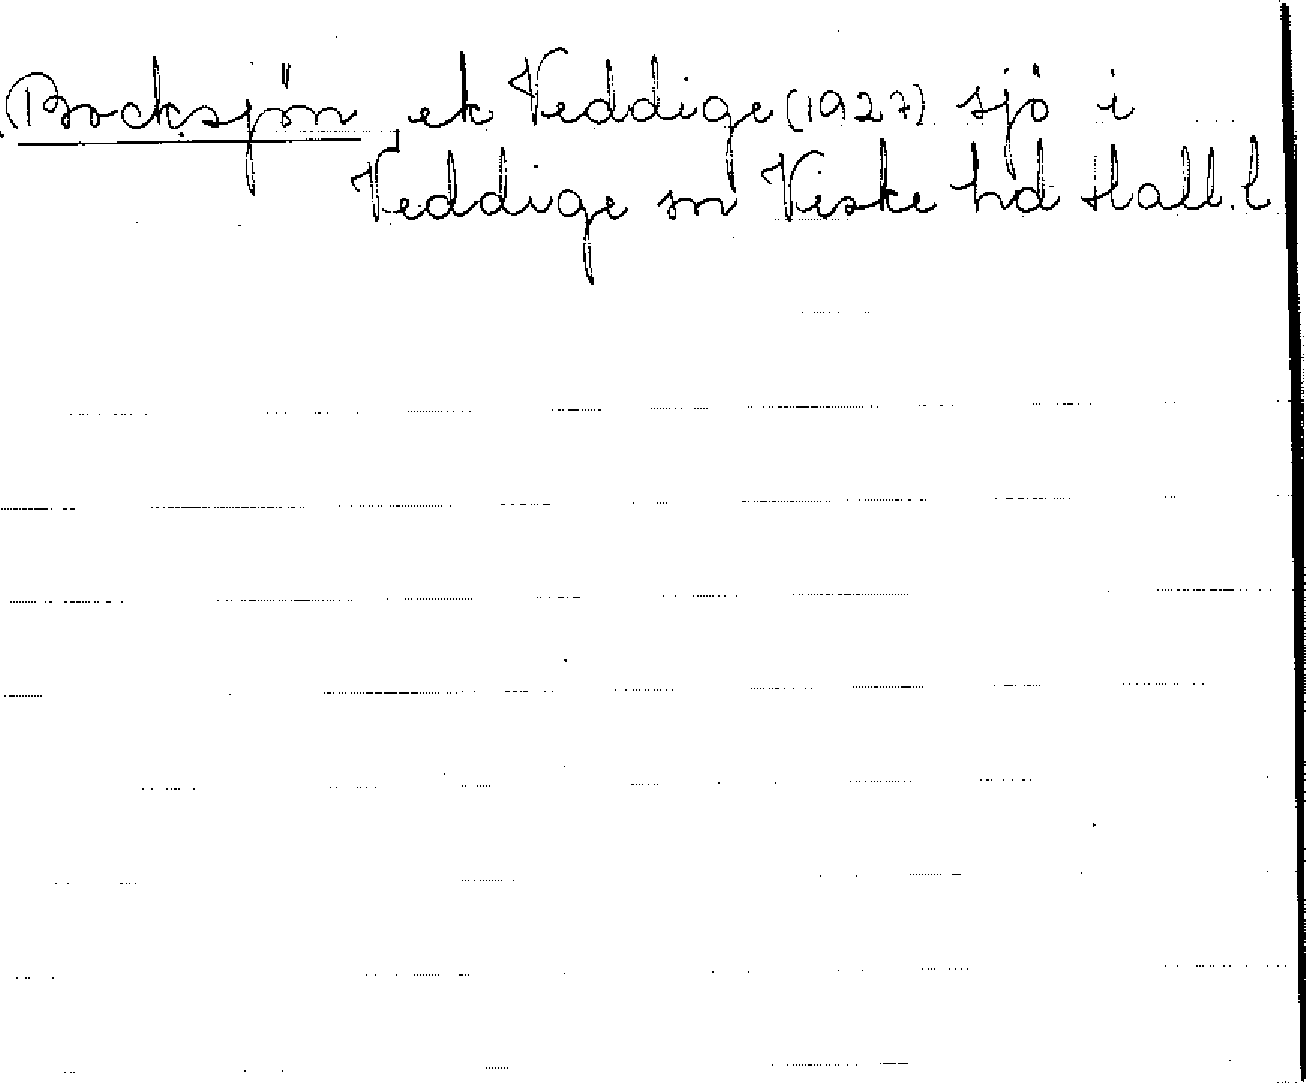 Bocksjön ek Veddige (1927) sjö i
Veddige sn Viske hd Hall. l